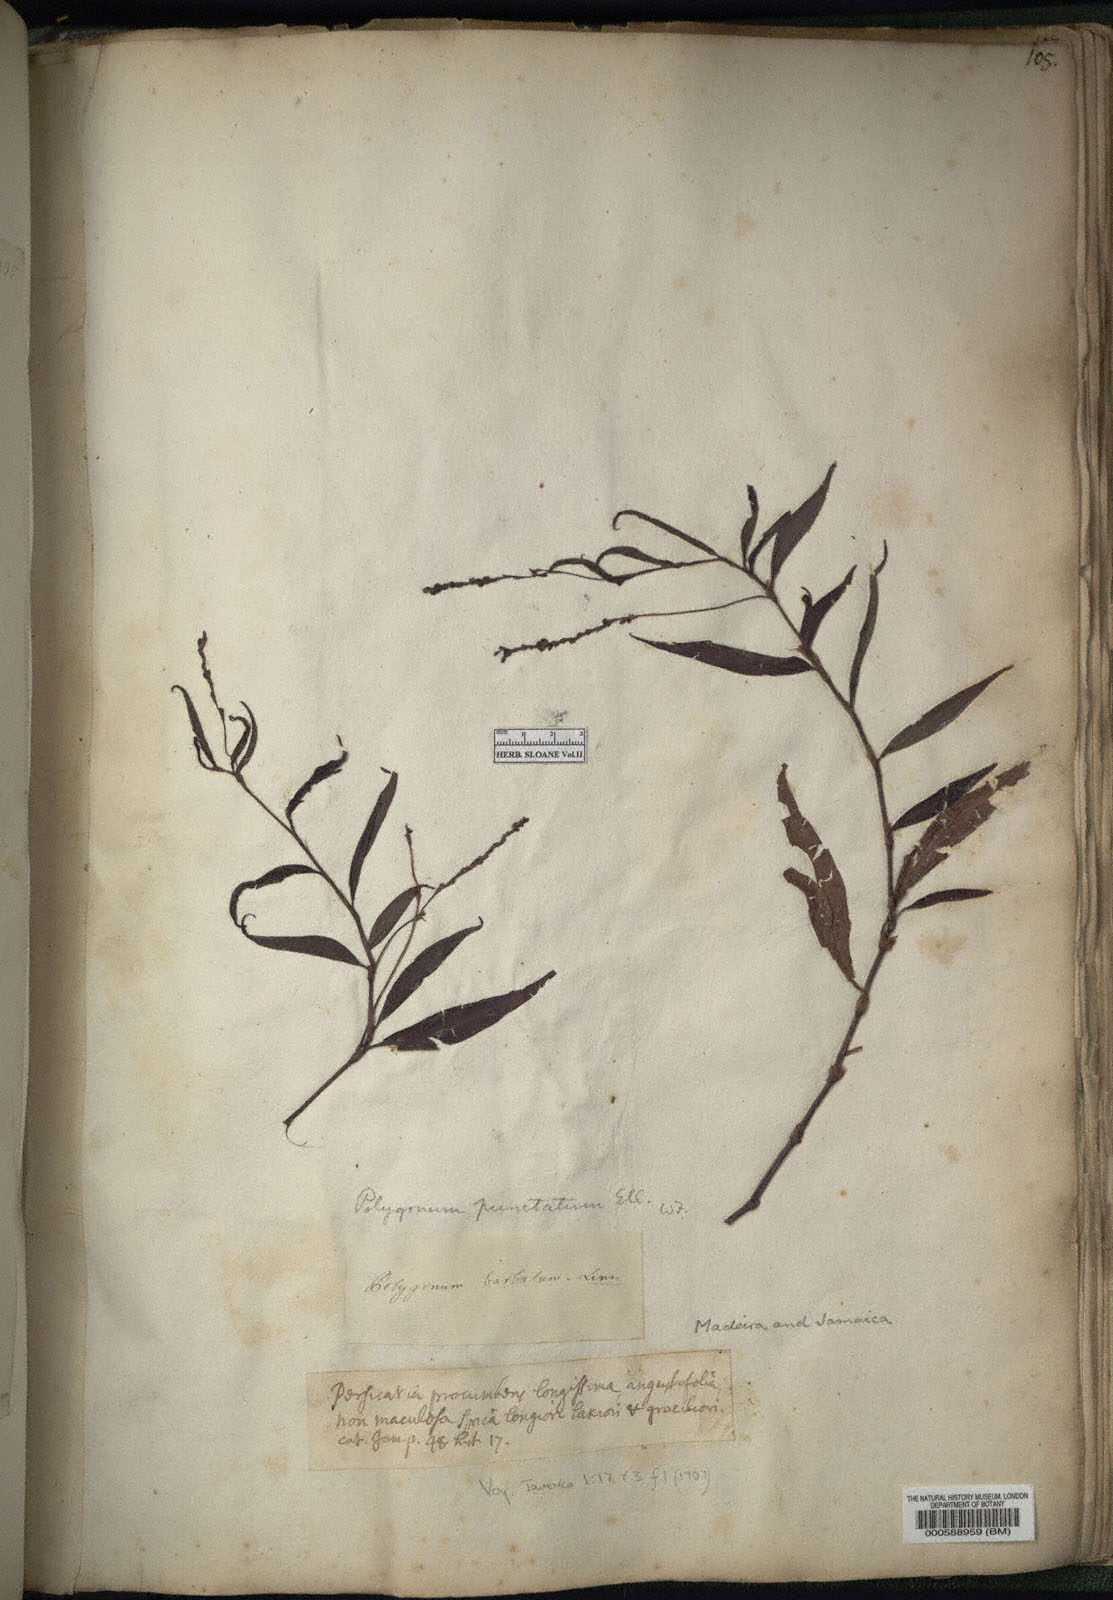 105.
1 2 3
HERB. SLOANE Vol.II
Polygonum punctatum Ell. WF.
Polygonum barbatum. Linn.
Madeira and Jamaica
Persicaria procumbens longissima angustifolia,
non maculosa spicâ longiori laxiori & graciliori.
cat. Jam p. 48 hist 17.
Voy. Jamaica 1:17. t.3. f1 (1707)
THE NATURAL HISTORY MUSEUM, LONDON
DEPARTMENT OF BOTANY
000588959 (BM)